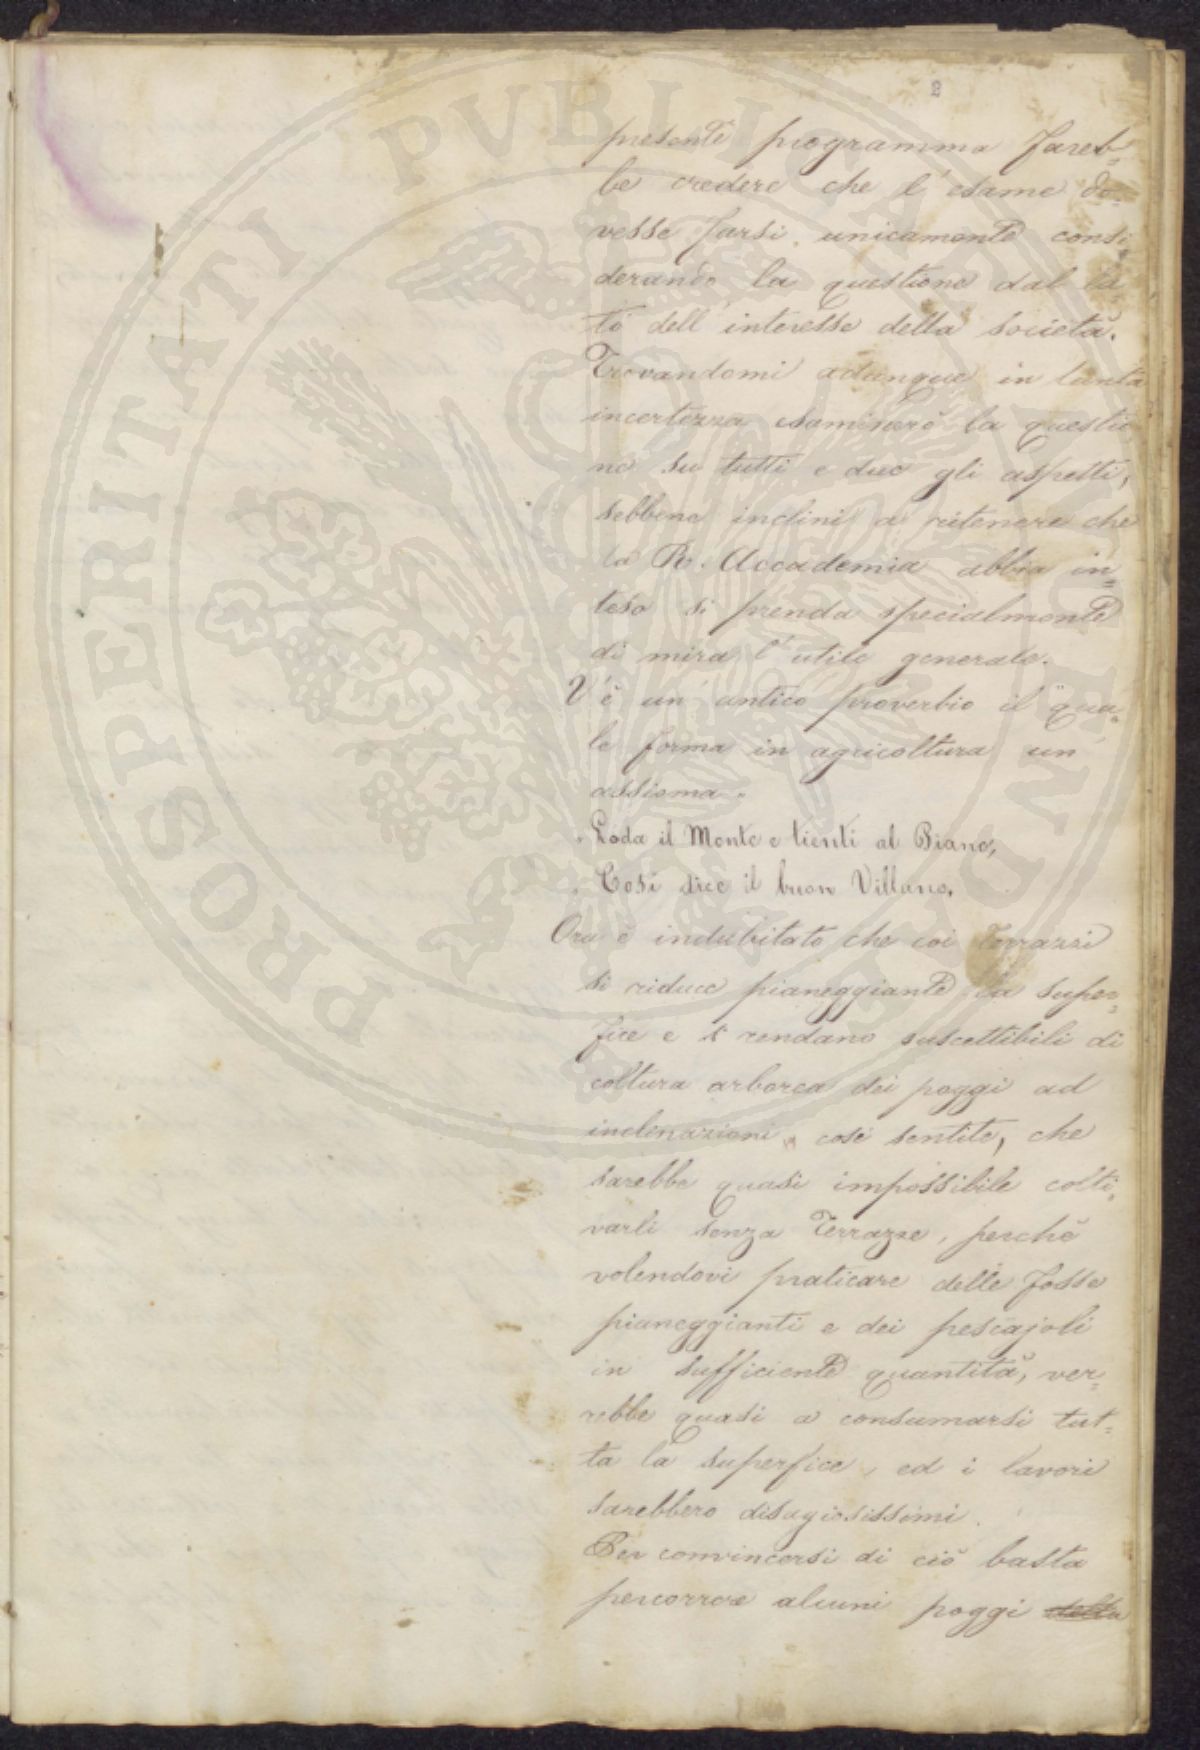 2
presente programma fareb-
be credere che l'esame do-
vesse farsi unicamente consi-
derando la questione dal la-
to dell'interesse della società.
Trovandomi adunque in tanta
incertezza esaminerò la questio
ne su tutti e due gli aspetti,
sebbene inclini a ritenere che
la R. Accademia abbia in=
teso si prenda specialmente
di mira l'utile generale.
V'è un antico proverbio il qua-
le forma in agricoltura un
assioma.
„ Loda il Monte e tienti al Piano,
„ Così dice il buon Villano.
Ora è indubitato che coi Terrazzi
si riduce pianeggiante la super=
fice e si rendano suscettibili di
coltura arborea dei poggi ad
inclinazioni, così sentite, che
sarebbe quasi impossibile colti-
varli senza Terrazze, perchè
volendovi praticare delle fosse
pianeggianti e dei pescajoli
in sufficiente quantità, ver=
rebbe quasi a consumarsi tut-
ta la superfice, ed i lavori
sarebbero disagiosissimi.
Per convincersi di ciò basta
percorrere alcuni poggi della
PROSPERITATI PVBLICAE AVGENDAE